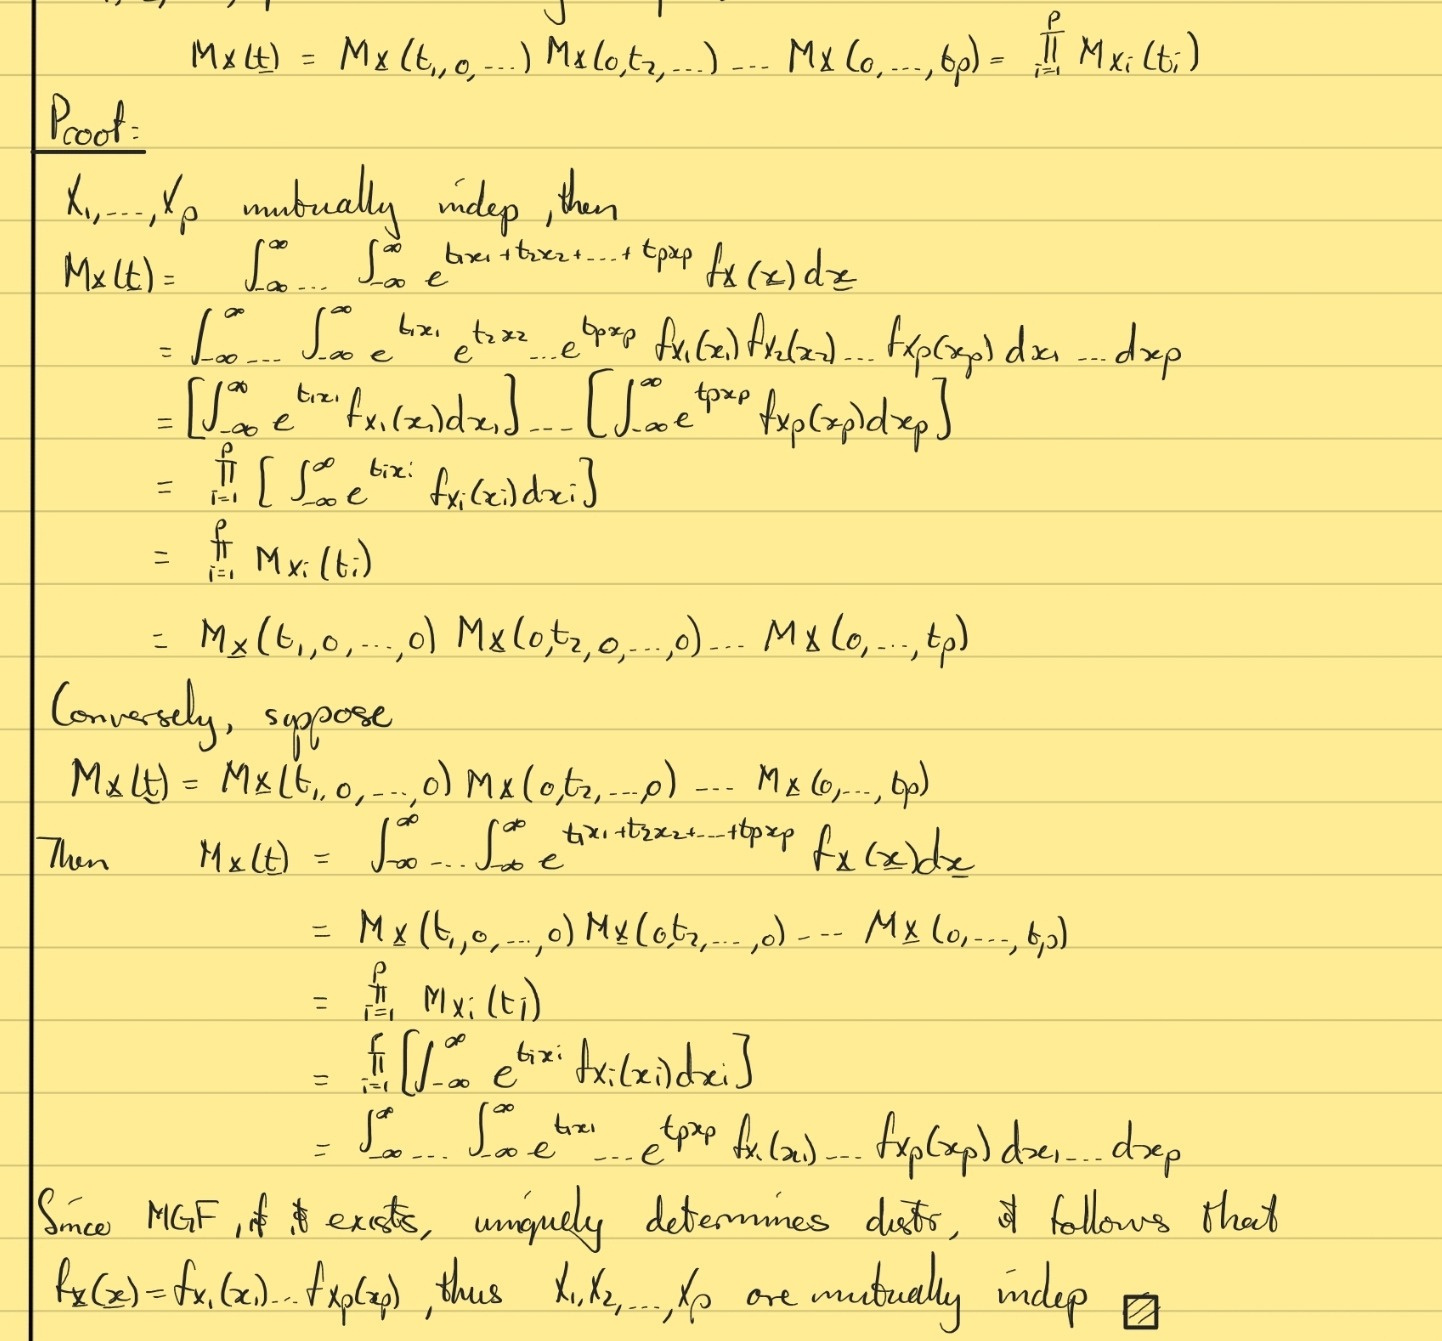 M_X(t) = M_X(t₁,0,...) M_X(0,t₂,...) ... M_X(0,...,t_p) = ∏_{i=1}^{p} M_{X_i}(t_i)
Proof:
X₁,...,X_p mutually indep, then
M_X(t) = ∫_{-∞}^{∞} ... ∫_{-∞}^{∞} e^{t₁x₁+t₂x₂+...+t_px_p} f_X(x) dx
= ∫_{-∞}^{∞} ... ∫_{-∞}^{∞} e^{t₁x₁} e^{t₂x₂} ... e^{t_px_p} f_{X₁}(x₁) f_{X₂}(x₂) ... f_{X_p}(x_p) dx₁ ... dx_p
= [∫_{-∞}^{∞} e^{t₁x₁} f_{X₁}(x₁) dx₁] ... [∫_{-∞}^{∞} e^{t_px_p} f_{X_p}(x_p) dx_p]
= ∏_{i=1}^{p} [∫_{-∞}^{∞} e^{t_ix_i} f_{X_i}(x_i) dx_i]
= ∏_{i=1}^{p} M_{X_i}(t_i)
= M_X(t₁,0,...,0) M_X(0,t₂,0,...,0) ... M_X(0,...,t_p)
Conversely, suppose
M_X(t) = M_X(t₁,0,...,0) M_X(0,t₂,...,0) ... M_X(0,...,t_p)
Then M_X(t) = ∫_{-∞}^{∞} ... ∫_{-∞}^{∞} e^{t₁x₁+t₂x₂+...+t_px_p} f_X(x) dx
= M_X(t₁,0,...,0) M_X(0,t₂,...,0) ... M_X(0,...,t_p)
= ∏_{i=1}^{p} M_{X_i}(t_i)
= ∏_{i=1}^{p} [∫_{-∞}^{∞} e^{t_ix_i} f_{X_i}(x_i) dx_i]
= ∫_{-∞}^{∞} ... ∫_{-∞}^{∞} e^{t₁x₁} ... e^{t_px_p} f_{X₁}(x₁) ... f_{X_p}(x_p) dx₁ ... dx_p
Since MGF, if it exists, uniquely determines distr, it follows that
f_X(x) = f_{X₁}(x₁) ... f_{X_p}(x_p), thus X₁,X₂,...,X_p are mutually indep